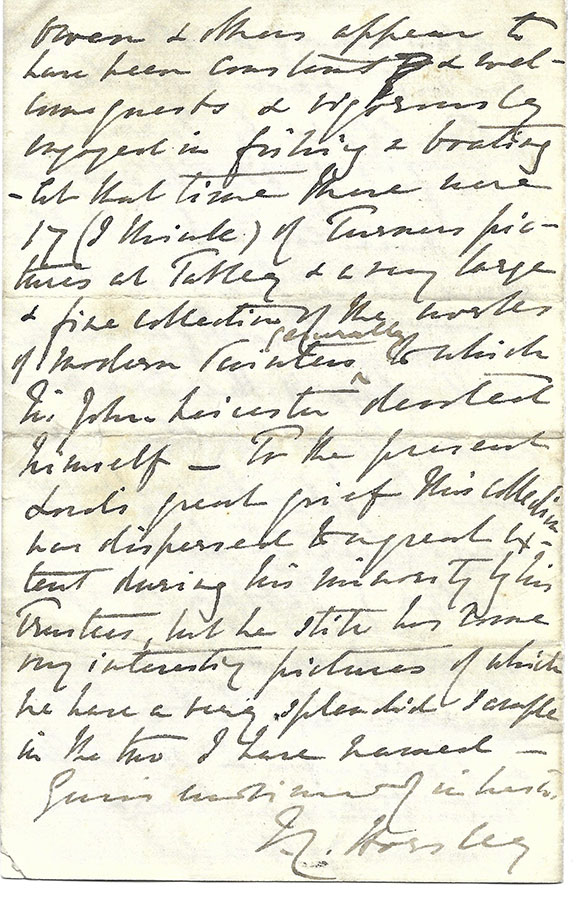 Owen & others appear to
have been constant & wel-
come guests & vigorously
engaged in fishing & boating
- At that time there were
17 (I think) of Turners pic-
tures at Tabley & a very large
& fine collection of the works
generally
of modern Painters to which
Sir John Leicester devoted
himself – To the present
Lords great grief this collection
was dispersed to a great ex-
tent during his minority by his
Trustees, but he still has some
very interesting pictures of which
we have a very splendid sample
in the two I have named –
Yours in haste
Horsley